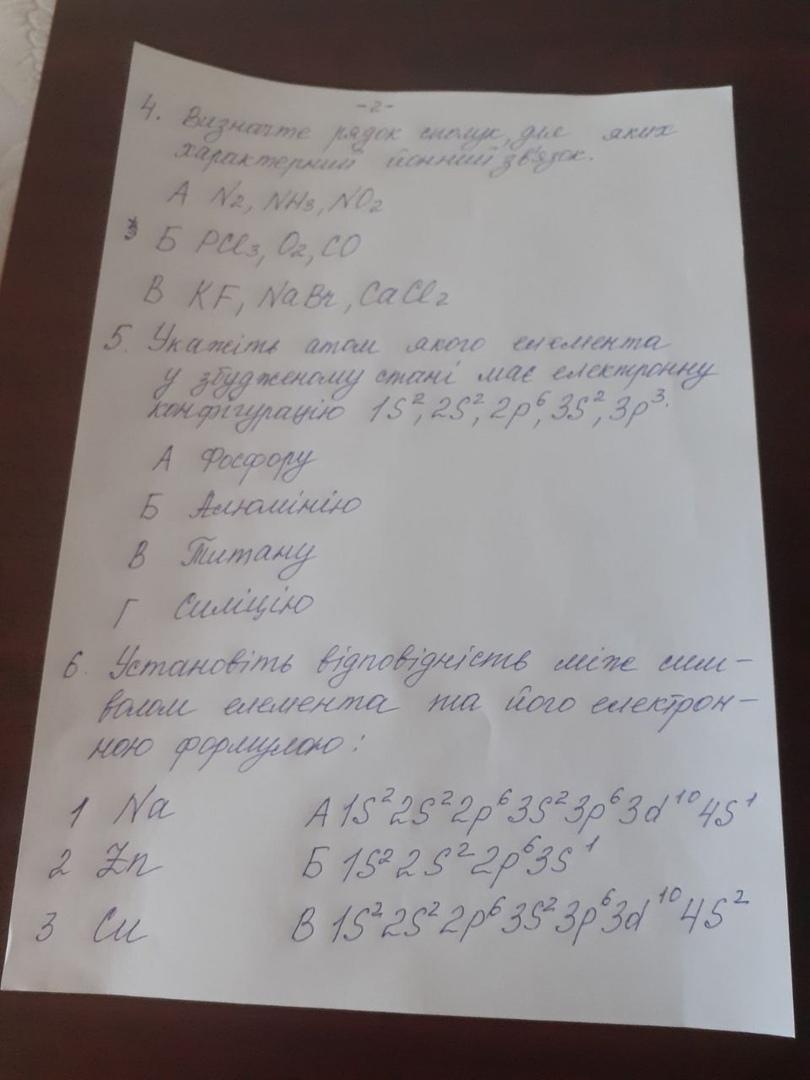 -2-
4. Визначте рядок сполук, для яких
характерний йонний зв'язок.
А N₂, NH₃, NO₂
Б PCl₃, O₂, CO
В KF, NaBr, CaCl₂
5. Укажіть атом якого елемента
у збудженому стані має електронну
конфігурацію 1S², 2S², 2p⁶, 3S², 3p³.
А Фосфору
Б Алюмінію
В Титану
Г Силіцію
6. Установіть відповідність між сим-
волом елемента та його електрон-
ною формулою:
1 Na А 1S²2S²2p⁶3S²3p⁶3d¹⁰4S¹
2 Zn Б 1S²2S²2p⁶3S¹
3 Cu В 1S²2S²2p⁶3S²3p⁶3d¹⁰4S²